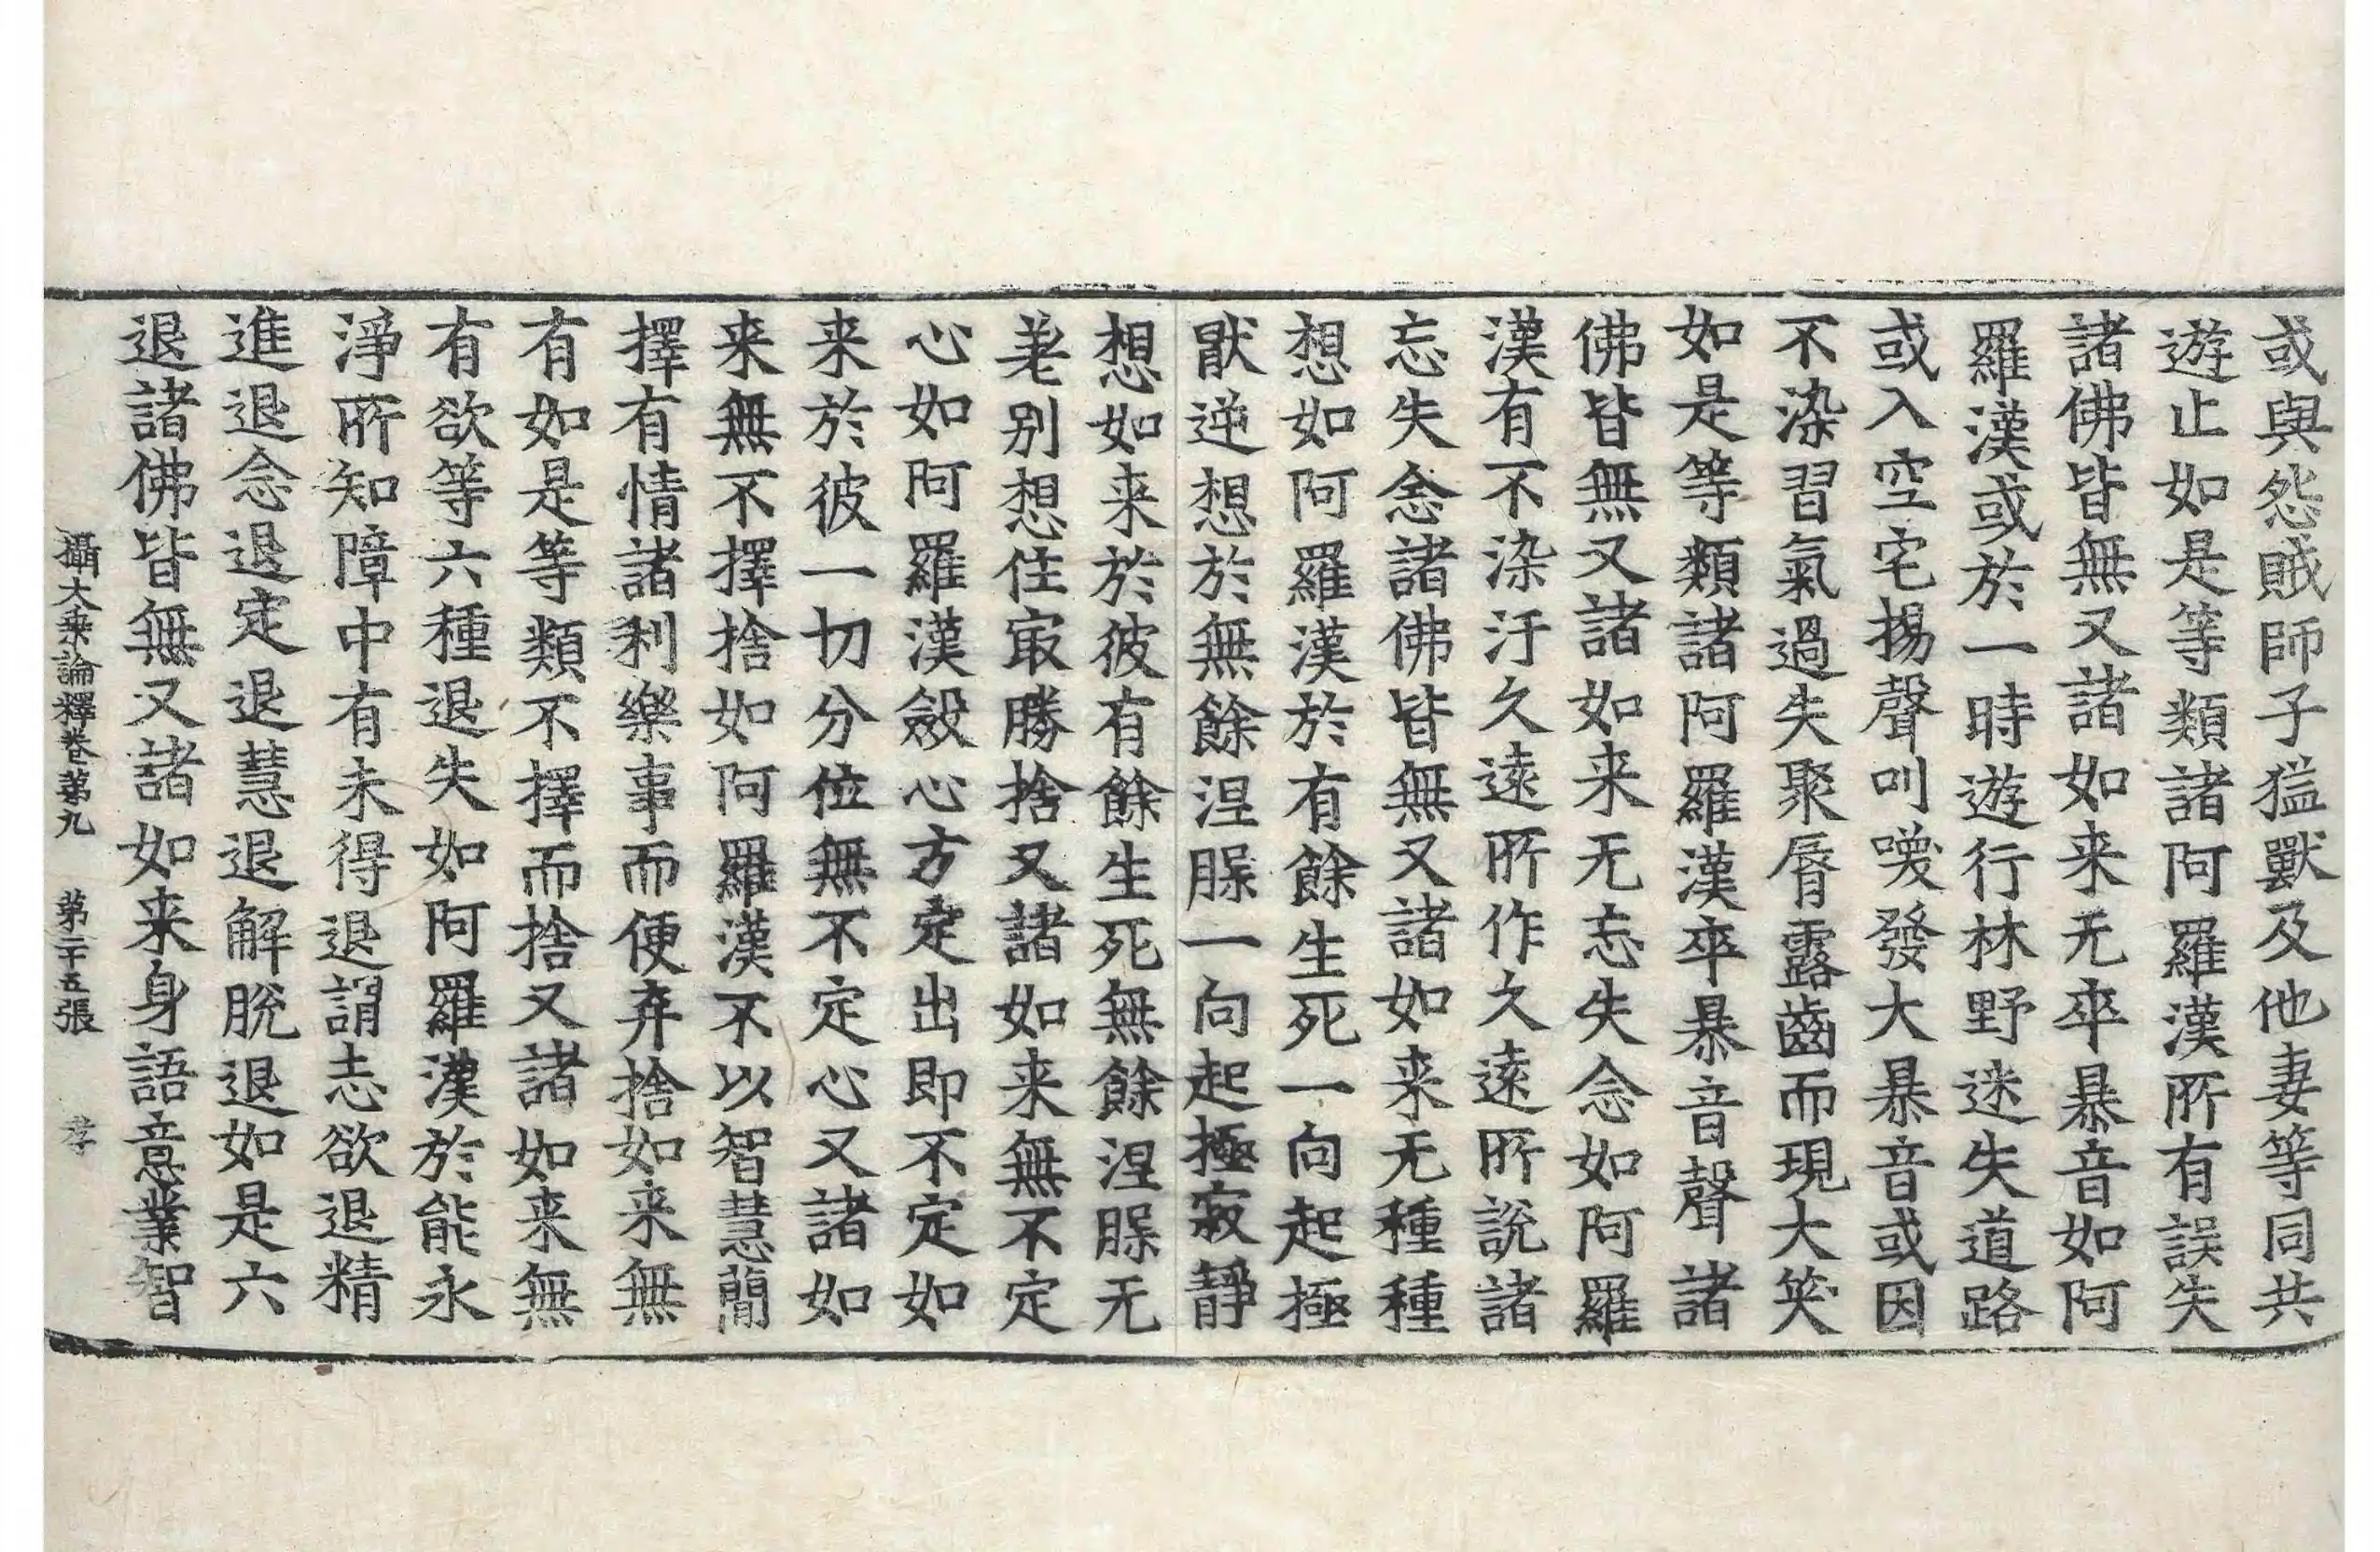 或與怨賊師子猛獸及他妻等同共
遊止如是等類諸阿羅漢所有誤失
諸佛皆無又諸如来无卒暴音如阿
羅漢或於一時遊行林野迷失道路
或入空宅揚聲叫喚發大暴音或因
不染習氣過失聚脣露齒而現大笑
如是等類諸阿羅漢卒暴音聲諸
佛皆無又諸如来无忘失念如阿羅
漢有不染汙久遠所作久遠所說諸
忘失念諸佛皆無又諸如来无種種
想如阿羅漢於有餘生死一向起極
猒逆想於無餘涅脲一向起極寂靜
想如来於彼有餘生死無餘涅脲无
差别想住㝡勝捨又諸如来無不定
心如阿羅漢斂心方定出即不定如
来於彼一切分位無不定心又諸如
来無不擇捨如阿羅漢不以智慧簡
擇有情諸利樂事而便弃捨如来無
有如是等類不擇而捨又諸如来無
有欲等六種退失如阿羅漢於能永
淨所知障中有未得退謂志欲退精
進退念退定退慧退解脫退如是六
退諸佛皆無又諸如来身語意業智
攝大乗論釋卷第九 第二十五張 孝